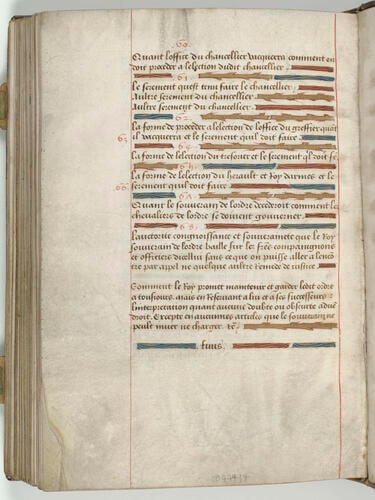 60
Quant loffice du chancellier vacquera comment on
doit proceder a lelection dudit chancellier
61
Le serement quest tenu faire le chancellier
Aultre serement du chancellier
Aultre serement du chancellier
62
La forme de proceder a lelection de loffice du greffier quant
63
il vacquera et le serement quil doit faire
64
La forme de lelection du tresorier et le serement ql doit fe
65
La forme de lelection du herault et roy darmes et le
66
serement quil doit faire
67
Quant le souverain de lordre decederoit comment les
chevaliers de lordre se doivent gouverner
68
Lauctorite congnoissance et souverainete que le Roy
souverain de lordre baille sur les freres compaignons
et officiers dicelluy sans ce que on puisse aller a lencon
tre par appel ne quelque aultre remede de iustice
Comment le Roy promet maintenir et garder ledit ordre
a tousiours mais en reservant a luy et a ses successeurs
linterpretation quant aucune doubte ou obscurte advien
droit Excepte en aucunnes articles que le souverain ne
peult muer ne changer
finis